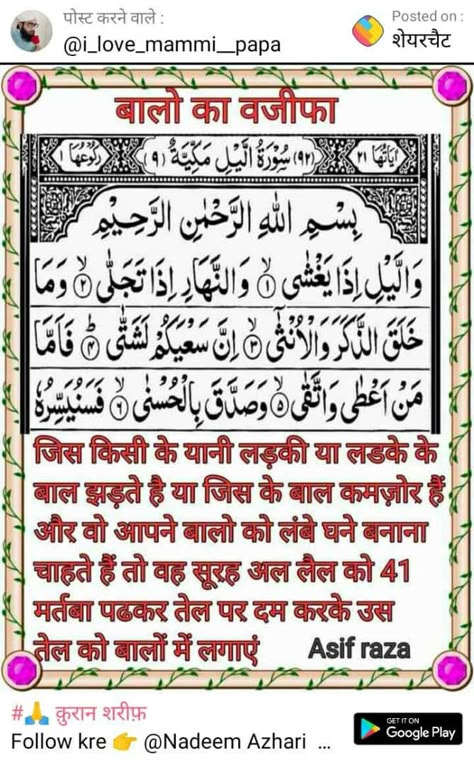 पोस्ट करने वाले :
@i_love_mammi__papa
Posted on :
शेयरचैट
बालो का वजीफा
اٰیَاتُهَا ٢١ (٩٢) سُوْرَةُ الَّیْلِ مَكِّیَّةٌ (٩) رُكُوْعُهَا ١
بِسْمِ اللهِ الرَّحْمٰنِ الرَّحِیْمِ
وَالَّیْلِ اِذَا یَغْشٰى ١ وَالنَّهَارِ اِذَا تَجَلّٰى ٢ وَمَا
خَلَقَ الذَّكَرَ وَالْاُنْثٰى ٣ اِنَّ سَعْیَكُمْ لَشَتّٰى ٤ فَاَمَّا
مَنْ اَعْطٰى وَاتَّقٰى ٥ وَصَدَّقَ بِالْحُسْنٰى ٦ فَسَنُیَسِّرُهٗ
जिस किसी के यानी लड़की या लडके के
बाल झड़ते है या जिस के बाल कमज़ोर हैं
और वो आपने बालो को लंबे घने बनाना
चाहते हैं तो वह सूरह अल लैल को 41
मर्तबा पढकर तेल पर दम करके उस
तेल को बालों में लगाएं Asif raza
#🙏 क़ुरान शरीफ़
Follow kre 👉 @Nadeem Azhari ...
GET IT ON
Google Play